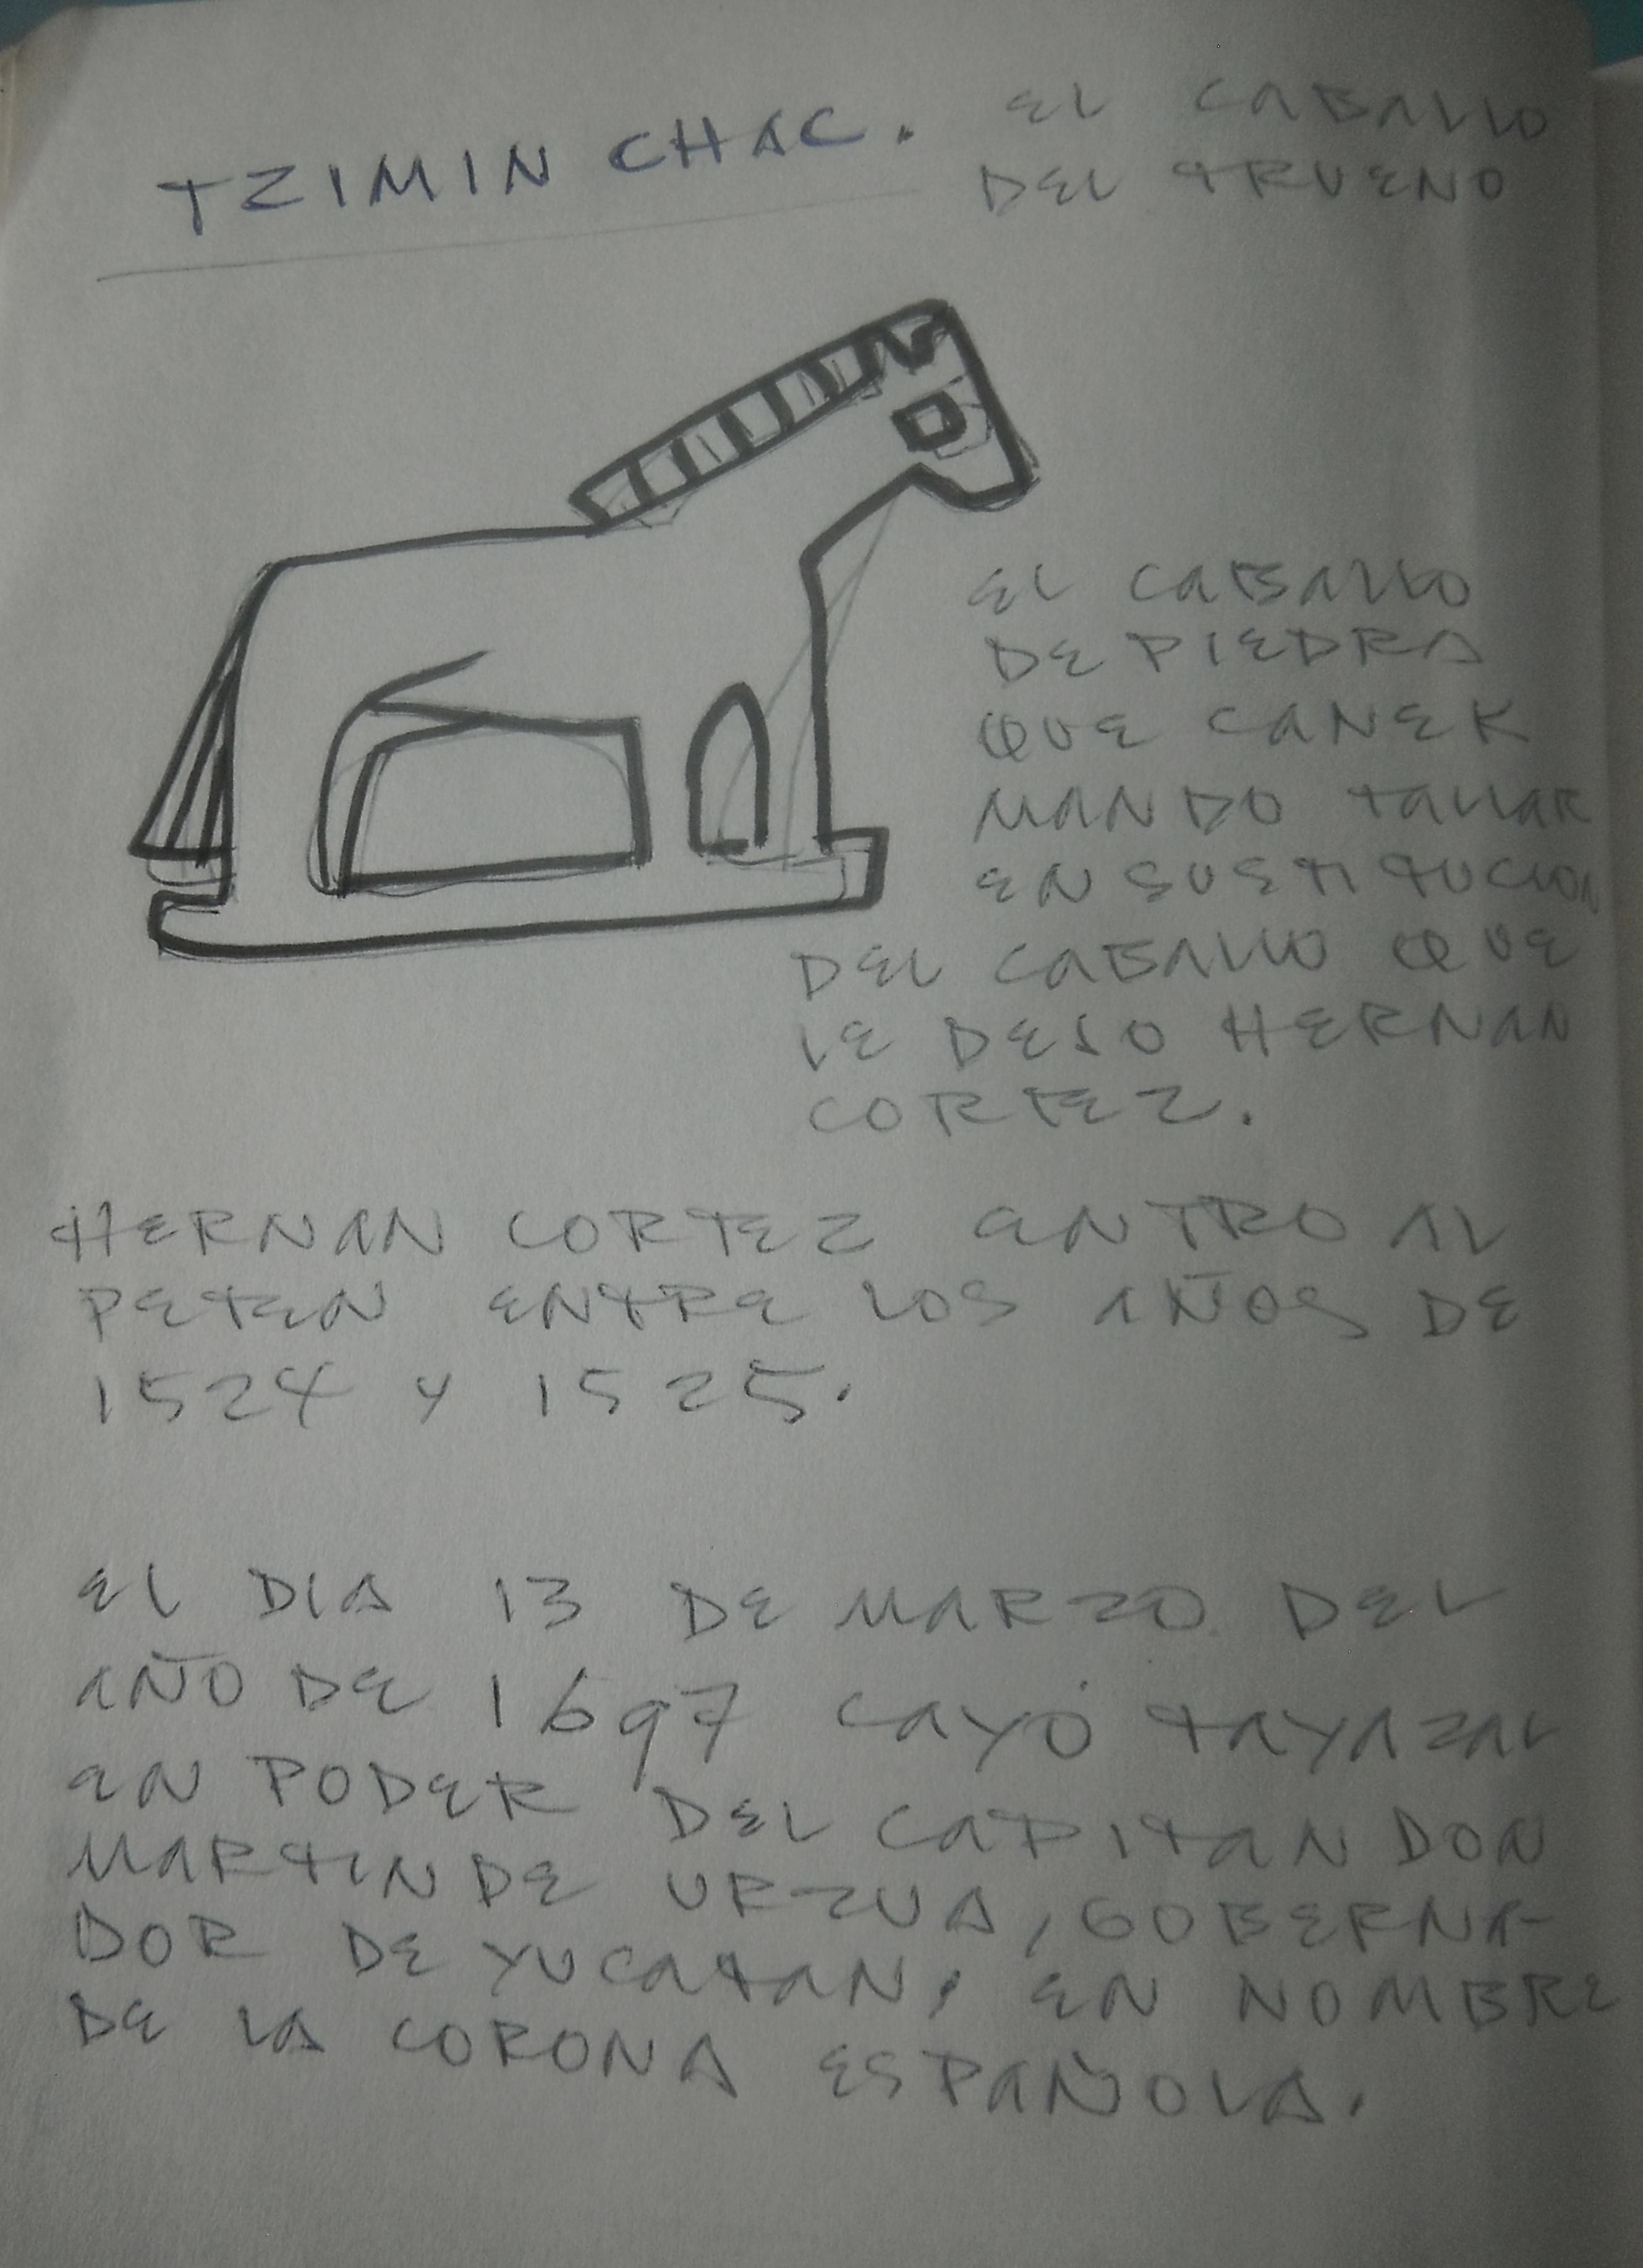 TZIMIN CHAC. EL CABALLO
DEL TRUENO
EL CABALLO
DE PIEDRA
QUE CANEK
MANDO TALLAR
EN SUSTITUCION
DEL CABALLO QUE
LE DEJO HERNAN
CORTEZ.
HERNAN CORTEZ ENTRO AL
PETEN ENTRE LOS AÑOS DE
1524 Y 1525.
EL DIA 13 DE MARZO DEL
AÑO DE 1697 CAYÓ TAYAZAL
EN PODER DEL CAPITAN DON
MARTIN DE URZUA, GOBERNA-
DOR DE YUCATAN, EN NOMBRE
DE LA CORONA ESPAÑOLA.